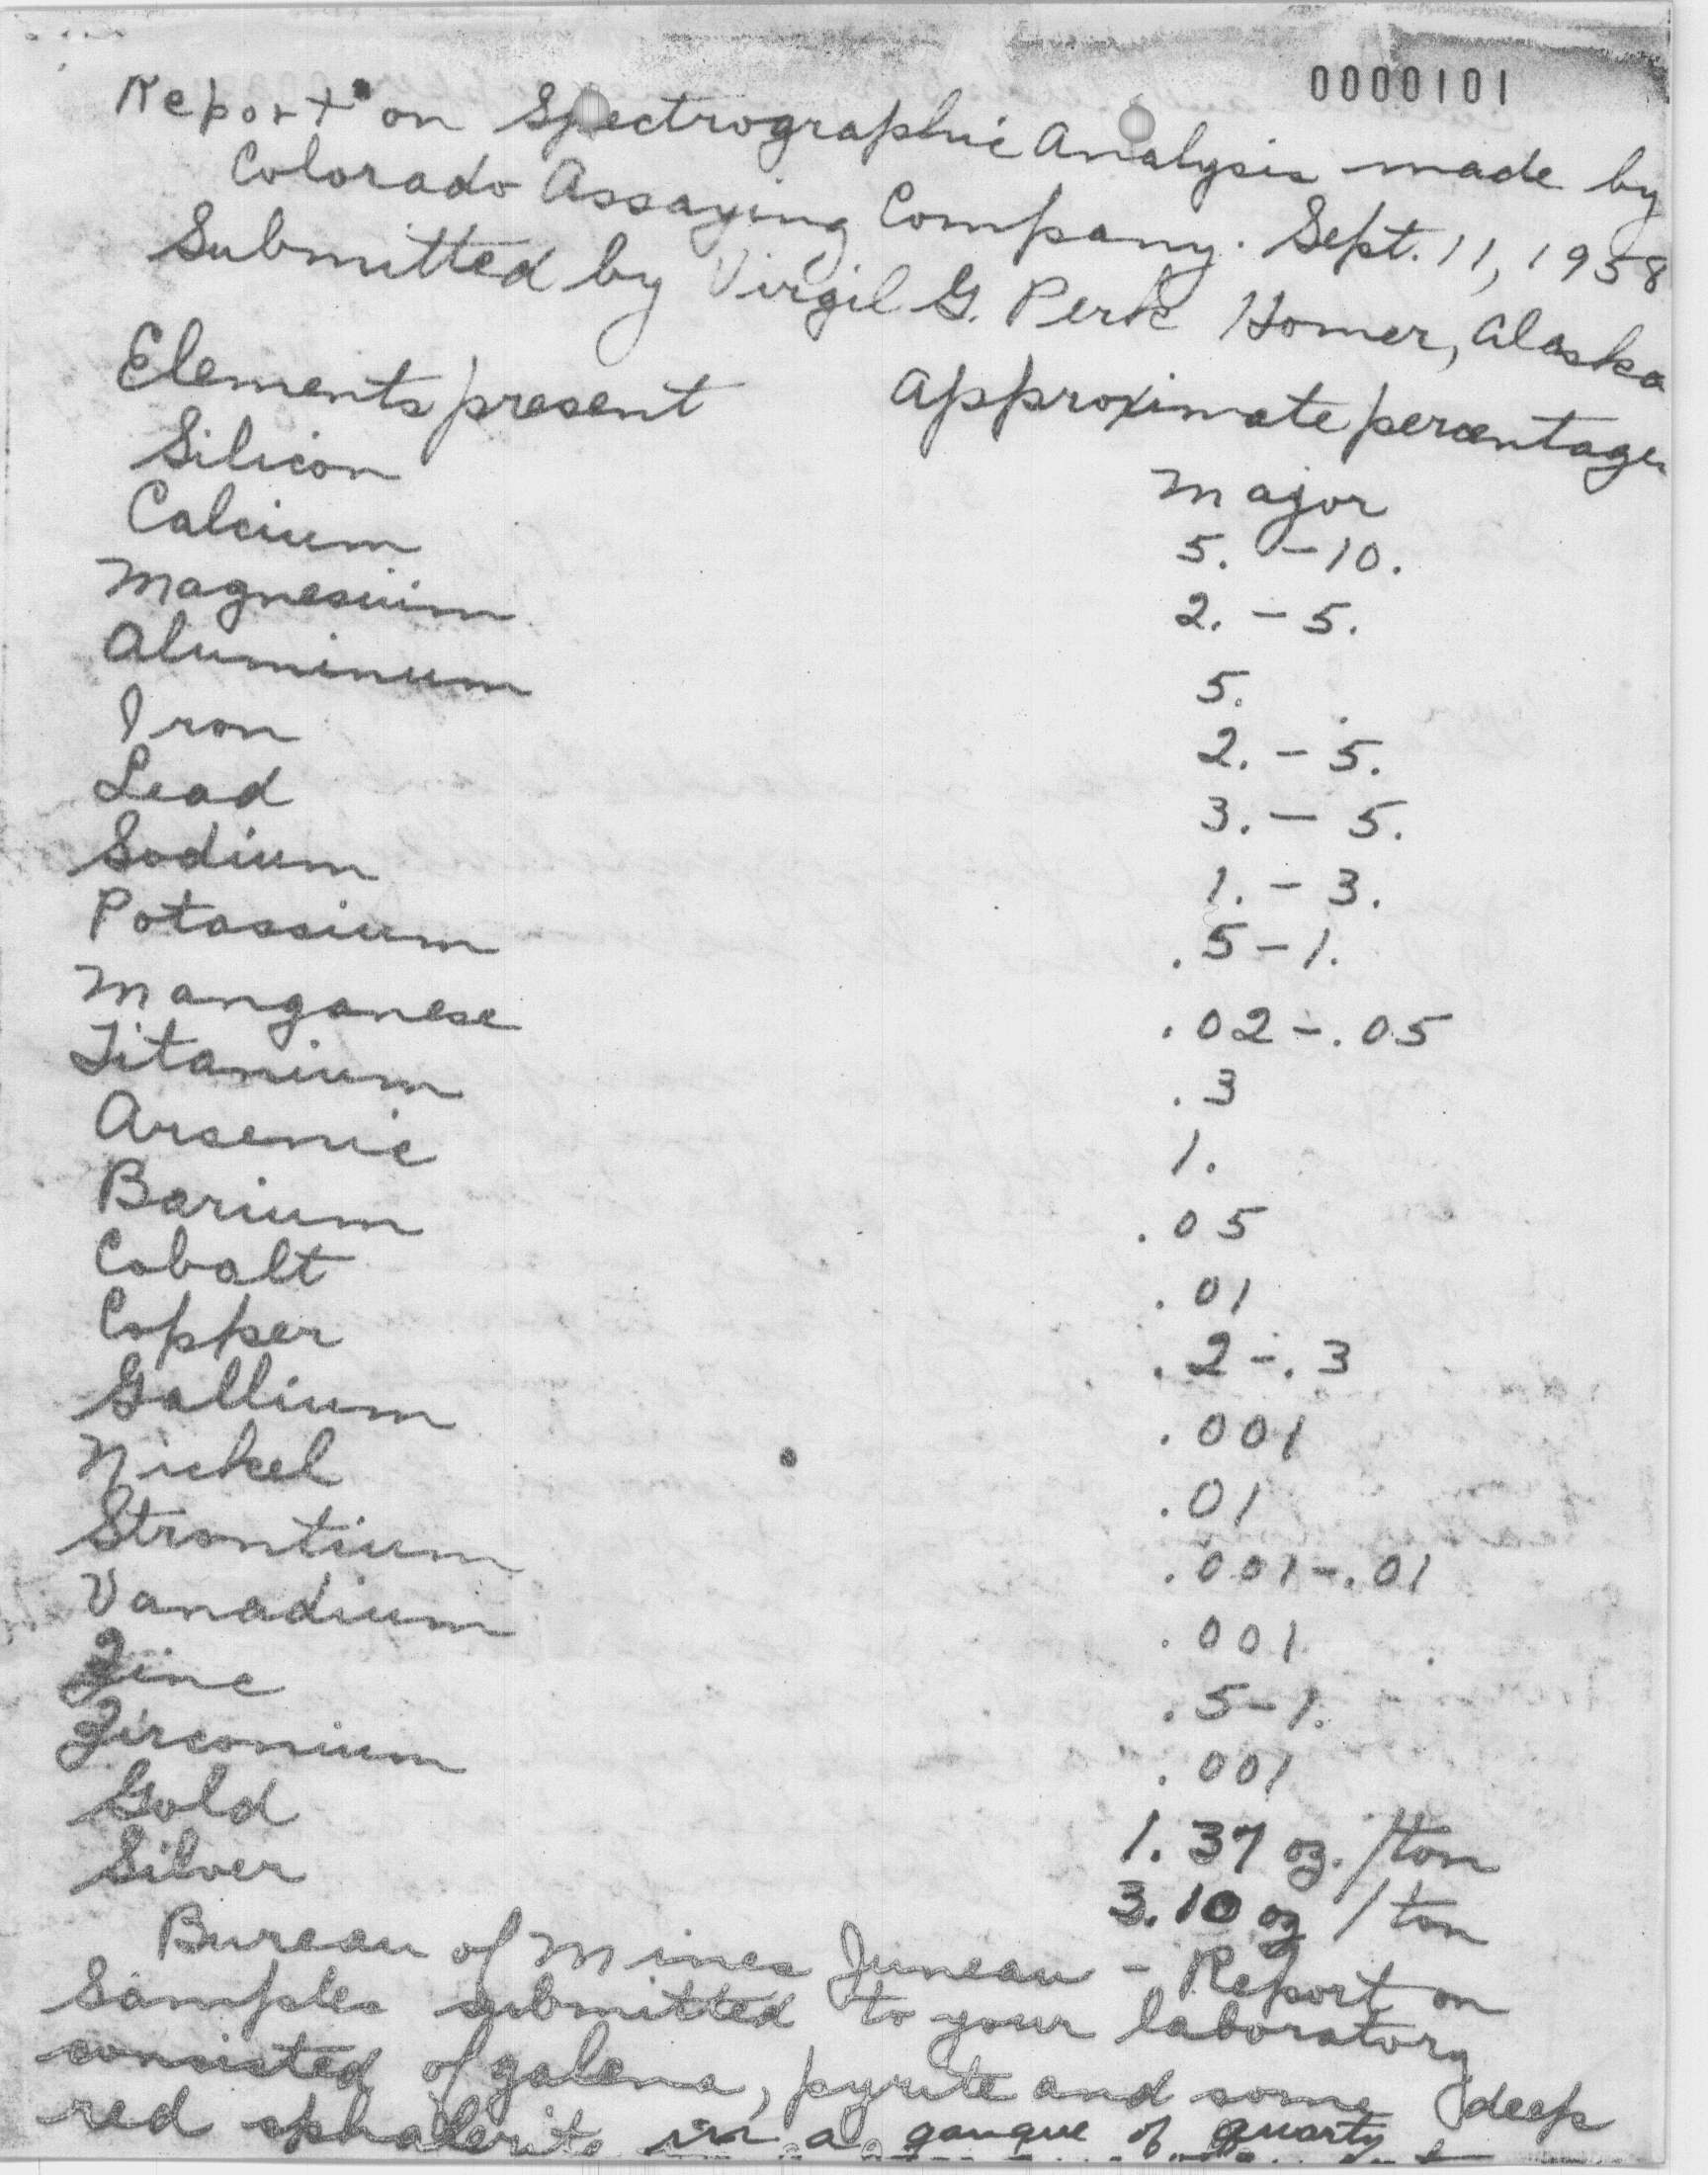 0000101
Report on Spectrographic Analysis made by
Colorado Assaying Company. Sept. 11, 1958
Submitted by Virgil G. Perk Homer, Alaska
Elements present Approximate percentages
Silicon Major
Calcium 5. - 10.
Magnesium 2. - 5.
Aluminum 5.
Iron 2. - 5.
Lead 3. - 5.
Sodium 1. - 3.
Potassium .5 - 1.
Manganese .02 - .05
Titanium .3
Arsenic 1.
Barium .05
Cobalt .01
Copper .2 - .3
Gallium .001
Nickel .01
Strontium .001 - .01
Vanadium .001
Zinc .5 - 1.
Zirconium .001
Gold 1.37 oz. / ton
Silver 3.10 oz / ton
Bureau of Mines Juneau - Report on
Samples submitted to your laboratory
consisted of galena, pyrite and some deep
red sphalerite in a gangue of quartz